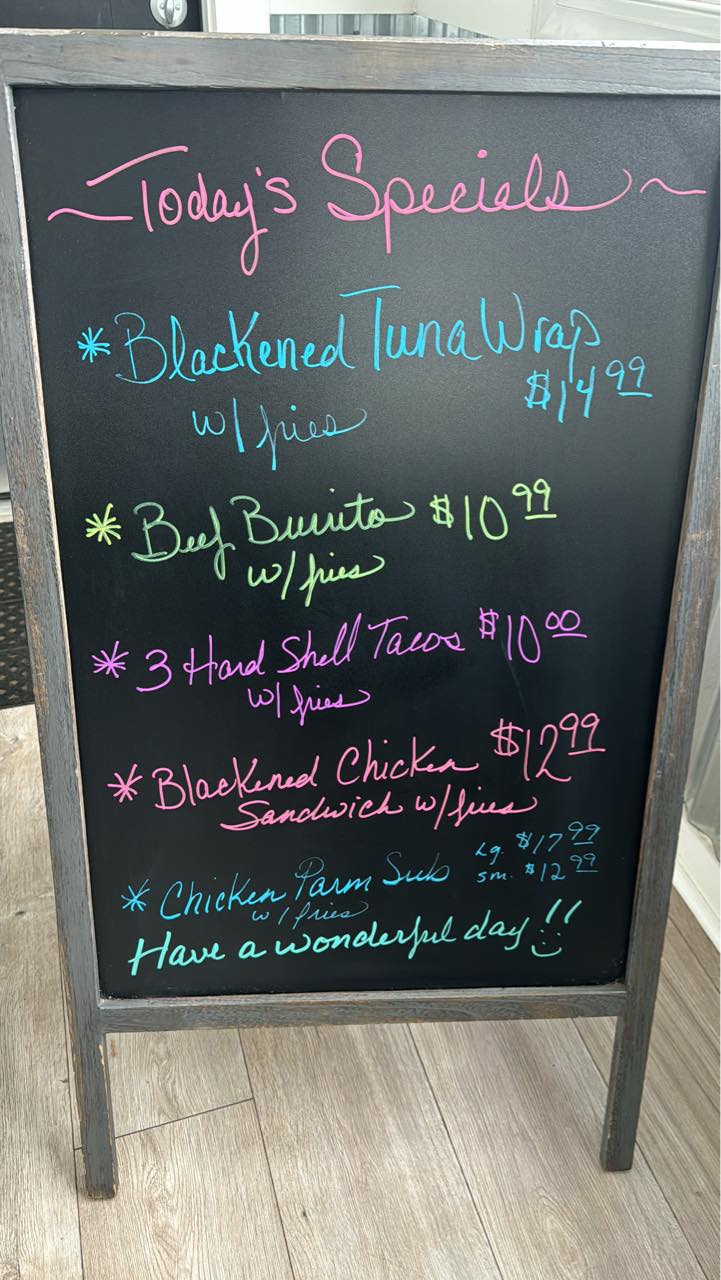 ~Today's Specials~
*Blackened Tuna Wrap
w/fries $14.99
*Beef Burrito $10.99
w/fries
*3 Hard Shell Tacos $10.00
w/fries
*Blackened Chicken $12.99
Sandwich w/fries
*Chicken Parm Sub Lg. $17.99
sm. $12.99
w/fries
Have a wonderful day!!